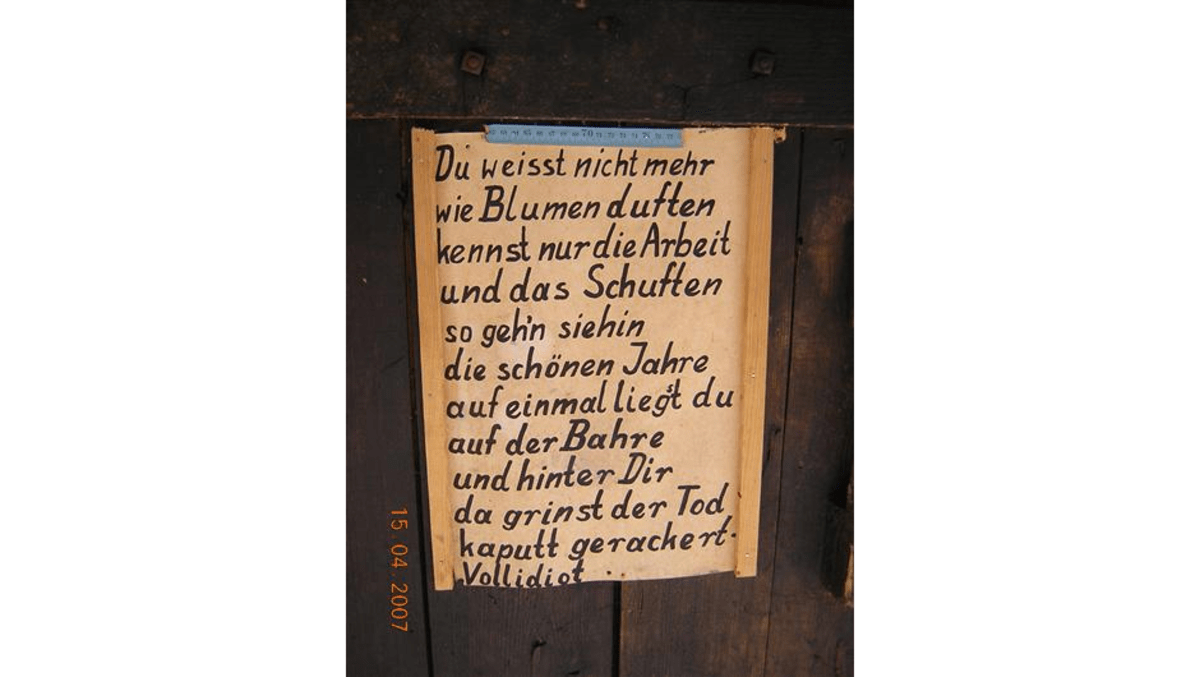 Du weisst nicht mehr
wie Blumen duften
kennst nur die Arbeit
und das Schuften
so geh'n sie hin
die schönen Jahre
auf einmal liegst du
auf der Bahre
und hinter Dir
da grinst der Tod
kaputt gerackert.
Vollidiot
15.04.2007